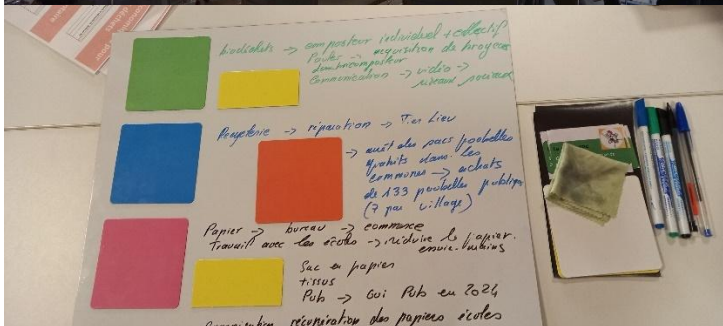 biodéchets -> composteur individuel + collectif
Poules -> acquisition de broyeurs
lombricomposteur
Communication -> vidéo ->
réseaux sociaux
-> réparation -> Tiers Lieu
-> arrêt des sacs poubelles
gratuits dans les
communes -> achats
de 133 poubelles publiques
(7 par village)
Papier -> bureau -> commerce
Travail avec les écoles -> réduire le papier
essuie-mains
Sac en papier
tissus
Pub -> Oui Pub en 2024
récupération des papiers écoles